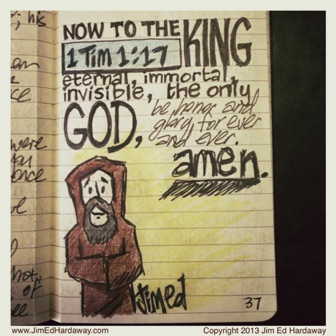 ; his
NOW TO THE KING
1 TIM 1:17
eternal, immortal,
invisible, the only
GOD, be honor and
glory for ever
and ever.
amen.
Jimed
37
www.JimEdHardaway.com
Copyright 2013 Jim Ed Hardaway